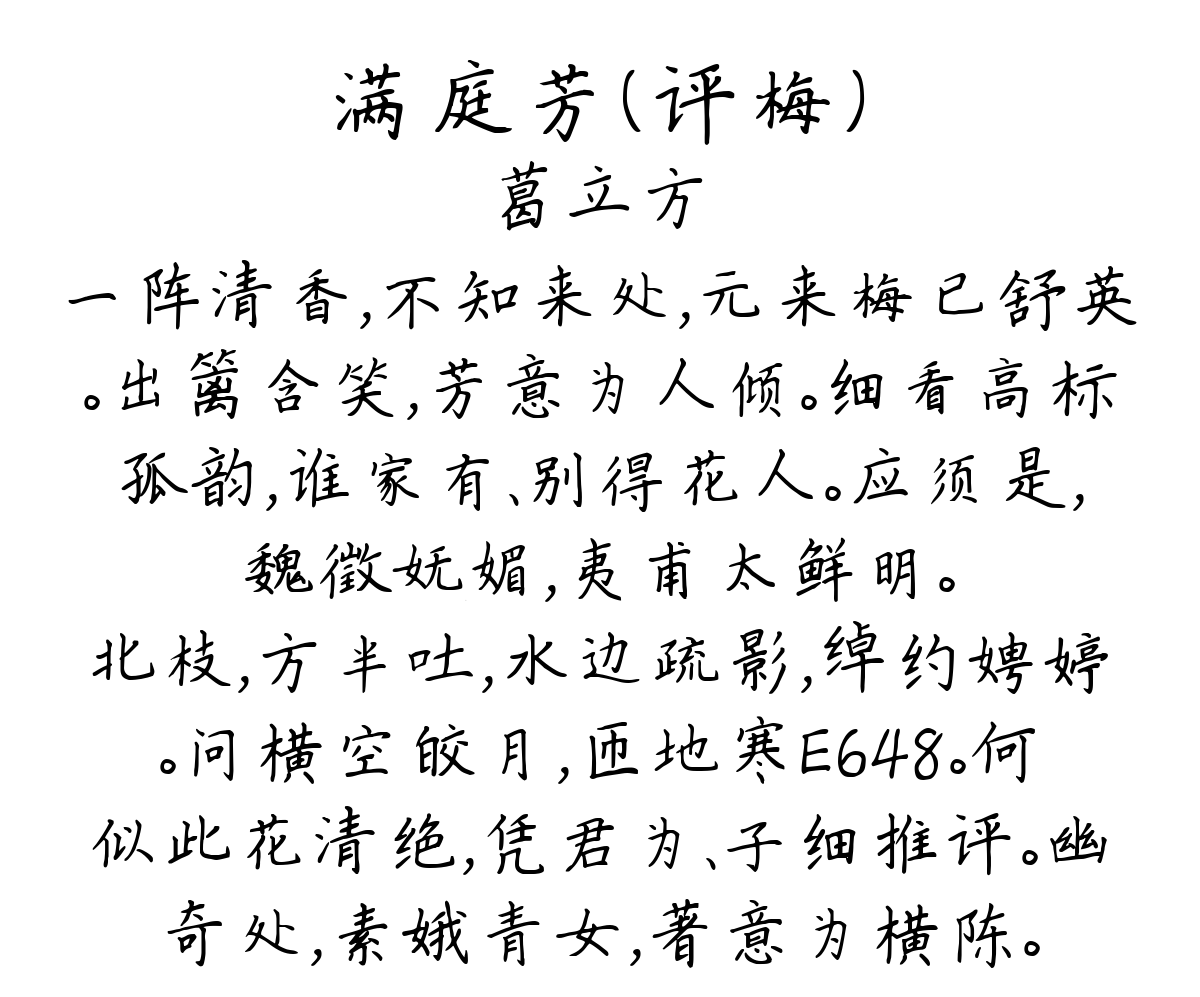 满庭芳(评梅)
葛立方
一阵清香,不知来处,元来梅已舒英
。出篱含笑,芳意为人倾。细看高标
孤韵,谁家有、别得花人。应须是,
魏徵妩媚,夷甫太鲜明。
北枝,方半吐,水边疏影,绰约娉婷
。问横空皎月,匝地寒E648。何
似此花清绝,凭君为、子细推评。幽
奇处,素娥青女,著意为横陈。